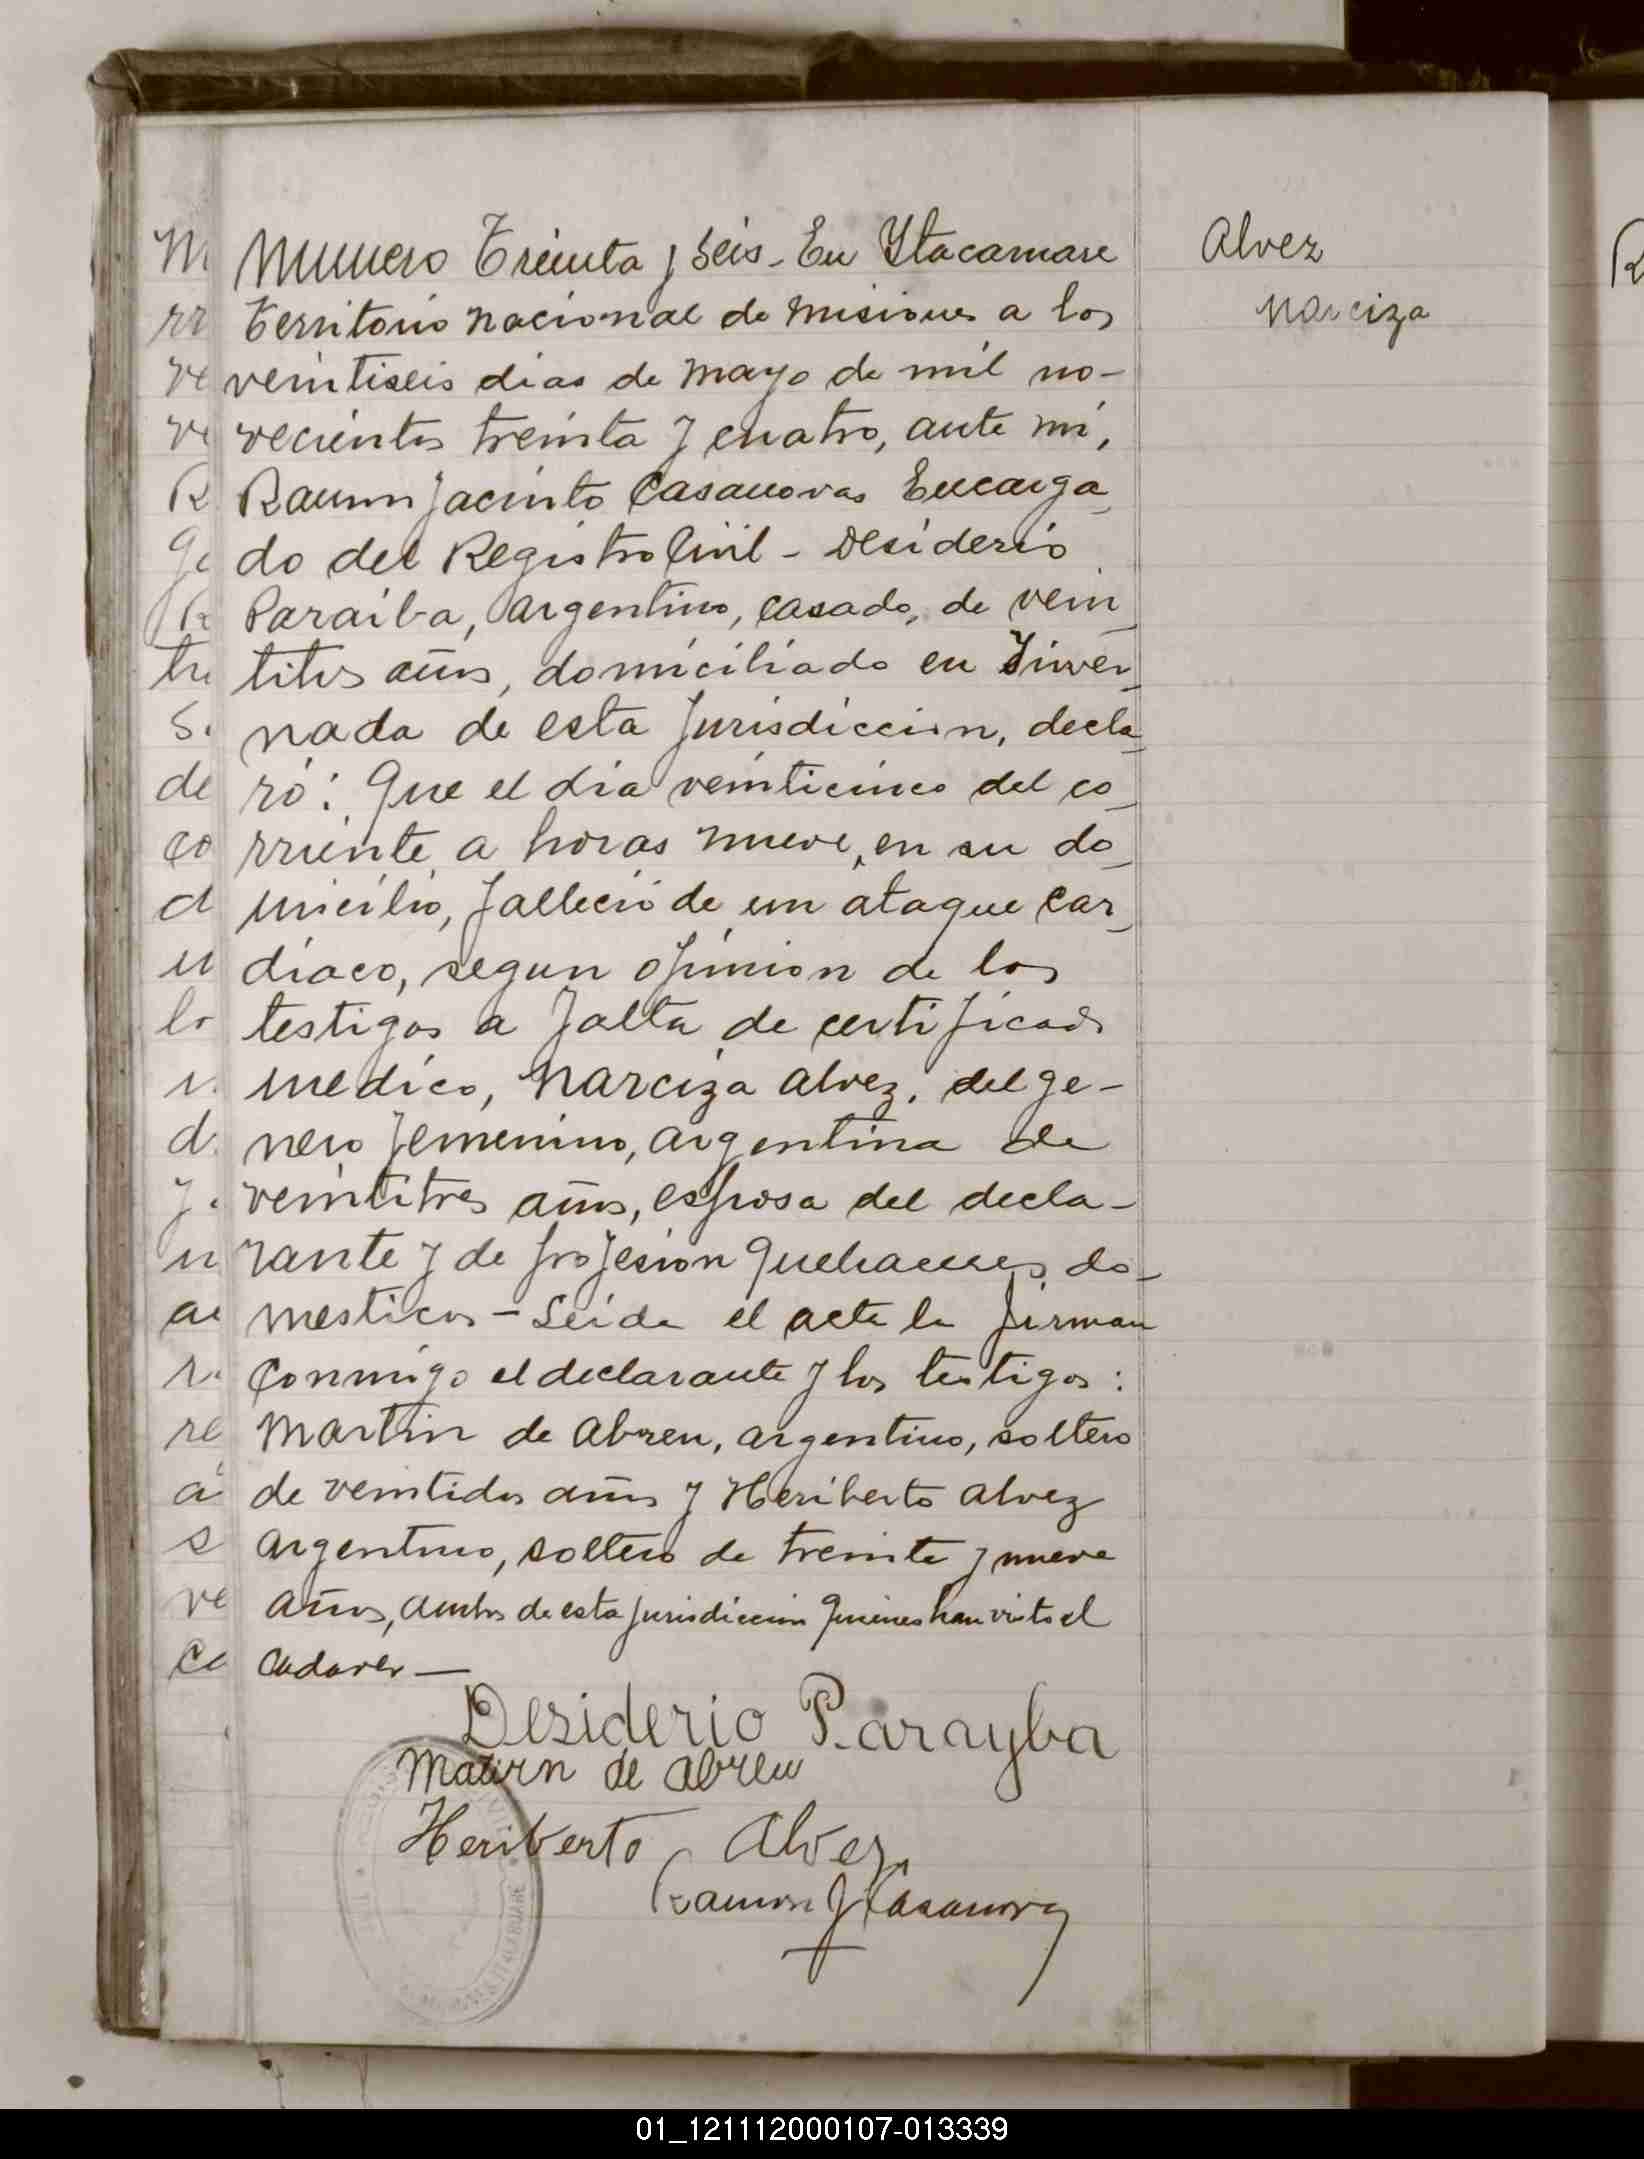 Numero Treinta y Seis - En Ytacaruare
Territorio nacional de misiones a los
veintiseis dias de mayo de mil no-
vecientos treinta y cuatro, ante mi,
Ramon Jacinto Casanovas Encarga_
do del Registro Civil - Desiderio
Paraiba, argentino, casado, de vein_
titres años, domiciliado en Yinver_
nada de esta Jurisdiccion, decla_
ró: Que el dia veinticinco del co_
rriente a horas nueve, en su do_
micilio, falleció de un ataque car_
diaco, segun opinion de los
testigos a falta de certificado
medico, Narciza Alvez, del ge-
nero femenino, argentina de
veintitres años, esposa del decla-
rante y de profesion quehaceres do_
mesticos - Leida el acta la firman
conmigo el declarante y los testigos:
Martin de Abreu, argentino, soltero
de veintidos años y Heriberto Alvez
argentino, soltero de treinta y nueve
años, ambos de esta Jurisdiccion quienes han visto el
cadaver —
Desiderio P.arayba
Matirn de abreu
Heriberto Alvez
Ramon J Casanova
Alvez
Narciza
01_121112000107-013339